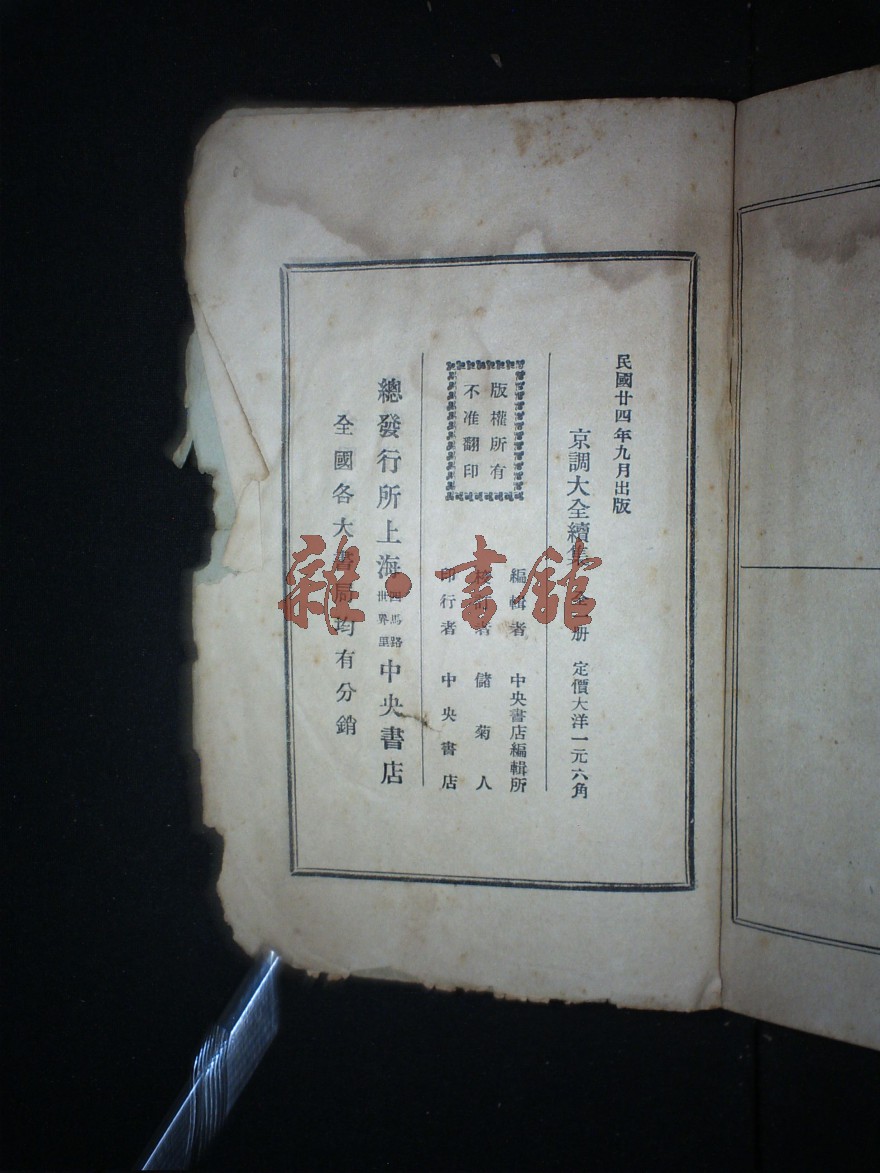 民國廿四年九月出版
京調大全續集 全一册 定價大洋一元六角
版權所有
不准翻印
編輯者 中央書店編輯所
校訂者 儲菊人
印行者 中央書店
總發行所上海四馬路世界里中央書店
全國各大書局均有分銷
雜·書館